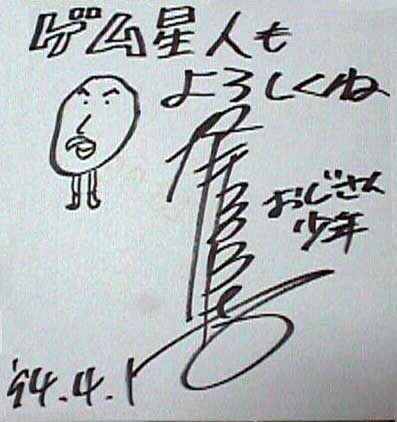 ゲム星人も
よろしくね
おじさん
少年
'94.4.1